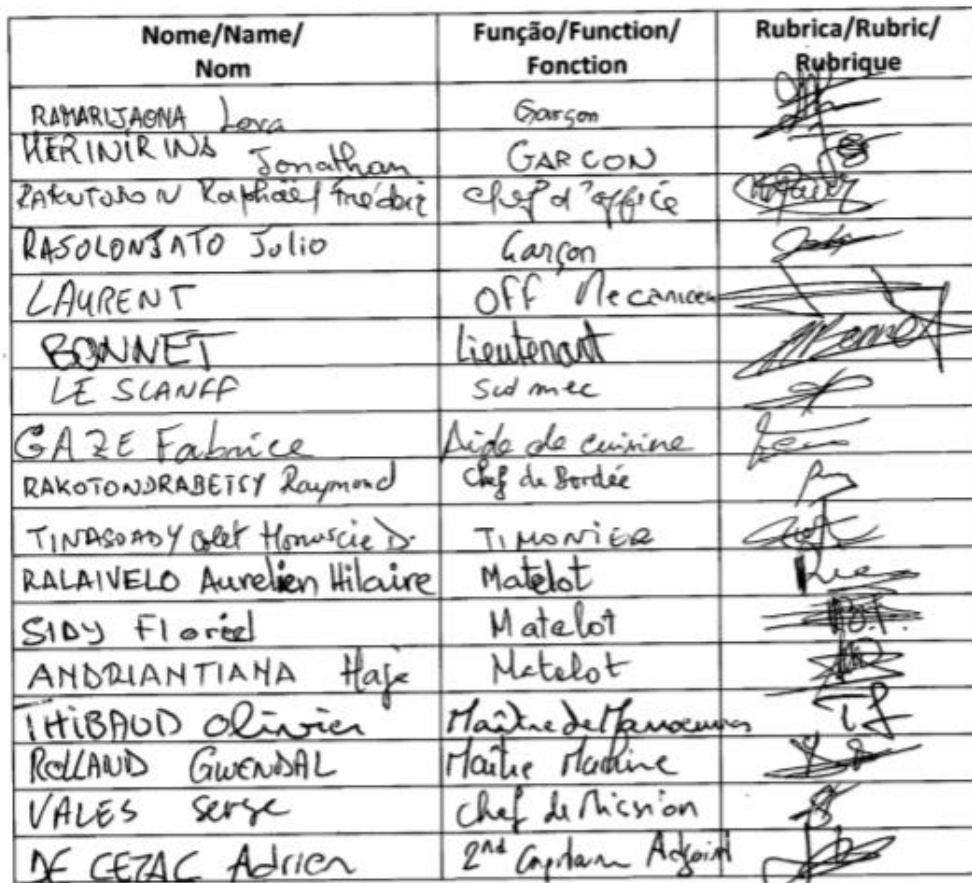 Nome/Name/ Função/Function/ Rubrica/Rubric/
Nom Fonction Rubrique
RAMARIJAONA Lova Garçon
HERINIRINA Jonathan GARCON
Raphaël Frédéric Chef d'office
RASOLONJATO Julio Garçon
LAURENT OFF Mecanicien
BONNET Lieutenant
LE SCANFF mec
GAZE Fabrice Aide de cuisine
RAKOTONDRABETSY Raymond Chef de Bordée
TINASOADY TIMONIER
RALAIVELO Aurelien Hilaire Matelot
SIDY Floriel Matelot
ANDRIANTIANA Haja Matelot
THIBAUD Olivier Maître de Manoeuvres
ROLLAND GWENDAL Maître Machine
VALES Serge Chef de Mission
DE CEZAC Adrien 2nd Capitaine Adjoint